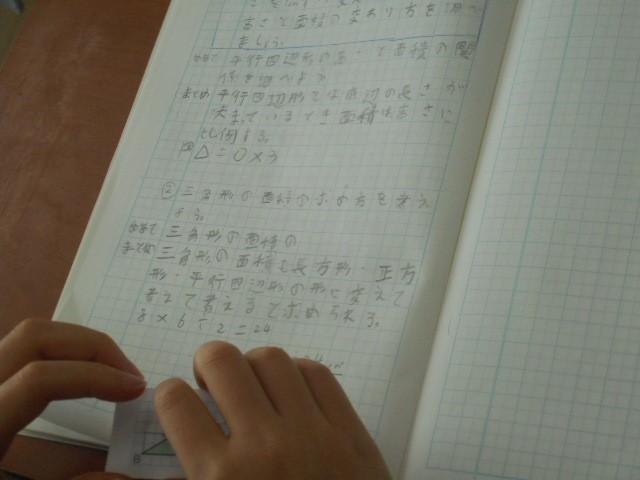 高さと面積の変わり方を調べ
ましょう。
めあて 平行四辺形の高さと面積の関
係を調べよう
まとめ 平行四辺形では底辺の長さが
決まっているとき面積は高さに
比例する。
△=○×3
② 三角形の面積の求め方を考え
よう。
めあて 三角形の面積の
まとめ 三角形の面積も長方形・正方
形・平行四辺形の形に変えて
考えて考えると求められる。
8×6÷2=24
B